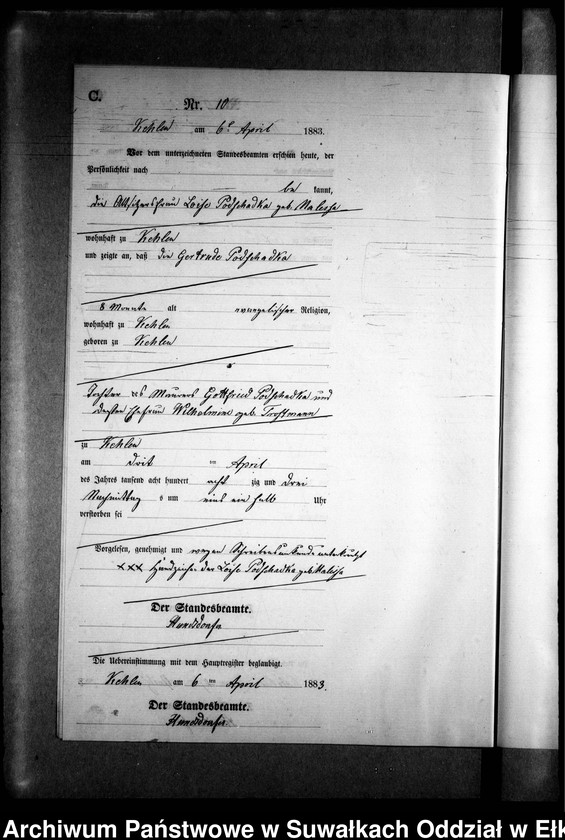 C.
Nr. 10
Kehlen am 6t April 1883.
Vor dem unterzeichneten Standesbeamten erschien heute, der
Persönlichkeit nach
be kannt,
die Altsitzerfrau Loise Podschadka geb. Malessa
wohnhaft zu Kehlen
und zeigte an, daß die Gertrude Podschadka
8 Monate alt evangelischer Religion,
wohnhaft zu Kehlen
geboren zu Kehlen
Tochter des Maurers Gottfried Podschadka und
dessen Ehefrau Wilhelmine geb. Trostmann
zu Kehlen
am drit ten April
des Jahres tausend acht hundert acht zig und drei
Nachmittag s um eins ein halb Uhr
verstorben sei
Vorgelesen, genehmigt und wegen Schreibensunkunde unterkreuzt
xxx Handzeichen der Loise Podschadka geb. Malessa
Der Standesbeamte.
Die Uebereinstimmung mit dem Hauptregister beglaubigt.
Kehlen am 6 ten April 1883.
Der Standesbeamte.
Archiwum Państwowe w Suwałkach Oddział w Ełk